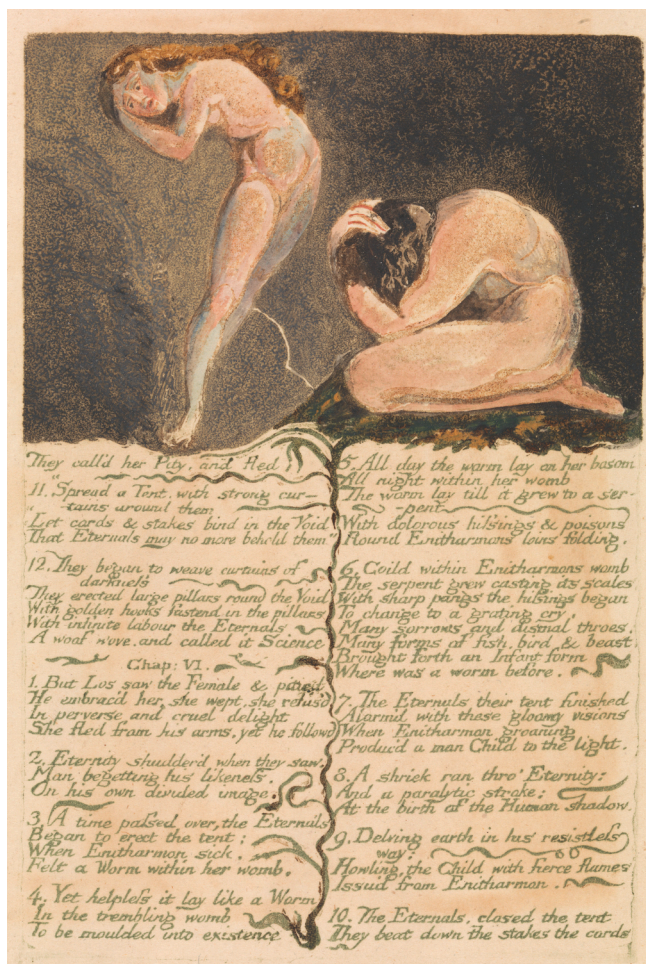 They call'd her Pity, and fled
11. "Spread a Tent, with strong cur-
tains around them
Let cords & stakes bind in the Void
That Eternals may no more behold them"
12. They began to weave curtains of
darkness
They erected large pillars round the Void
With golden hooks fastend in the pillars
With infinite labour the Eternals
A woof wove, and called it Science
Chap: VI.
1. But Los saw the Female & pitied
He embrac'd her, she wept, she refus'd
In perverse and cruel delight
She fled from his arms, yet he followd
2. Eternity shudder'd when they saw,
Man begetting his likeness,
On his own divided image.
3. A time passed over, the Eternals
Began to erect the tent;
When Enitharmon sick,
Felt a Worm within her womb.
4. Yet helpless it lay like a Worm
In the trembling womb
To be moulded into existence
5. All day the worm lay on her bosom
All night within her womb
The worm lay till it grew to a ser-
pent
With dolorous hissings & poisons
Round Enitharmons loins folding,
6. Coild within Enitharmons womb
The serpent grew casting its scales
With sharp pangs the hissings began
To change to a grating cry,
Many sorrows and dismal throes,
Many forms of fish, bird & beast,
Brought forth an Infant form
Where was a worm before.
7. The Eternals their tent finished
Alarm'd with these gloomy visions
When Enitharmon groaning
Produc'd a man Child to the light.
8. A shriek ran thro' Eternity:
And a paralytic stroke;
At the birth of the Human shadow.
9. Delving earth in his resistless
way;
Howling, the Child with fierce flames
Issu'd from Enitharmon.
10. The Eternals, closed the tent
They beat down the stakes the cords